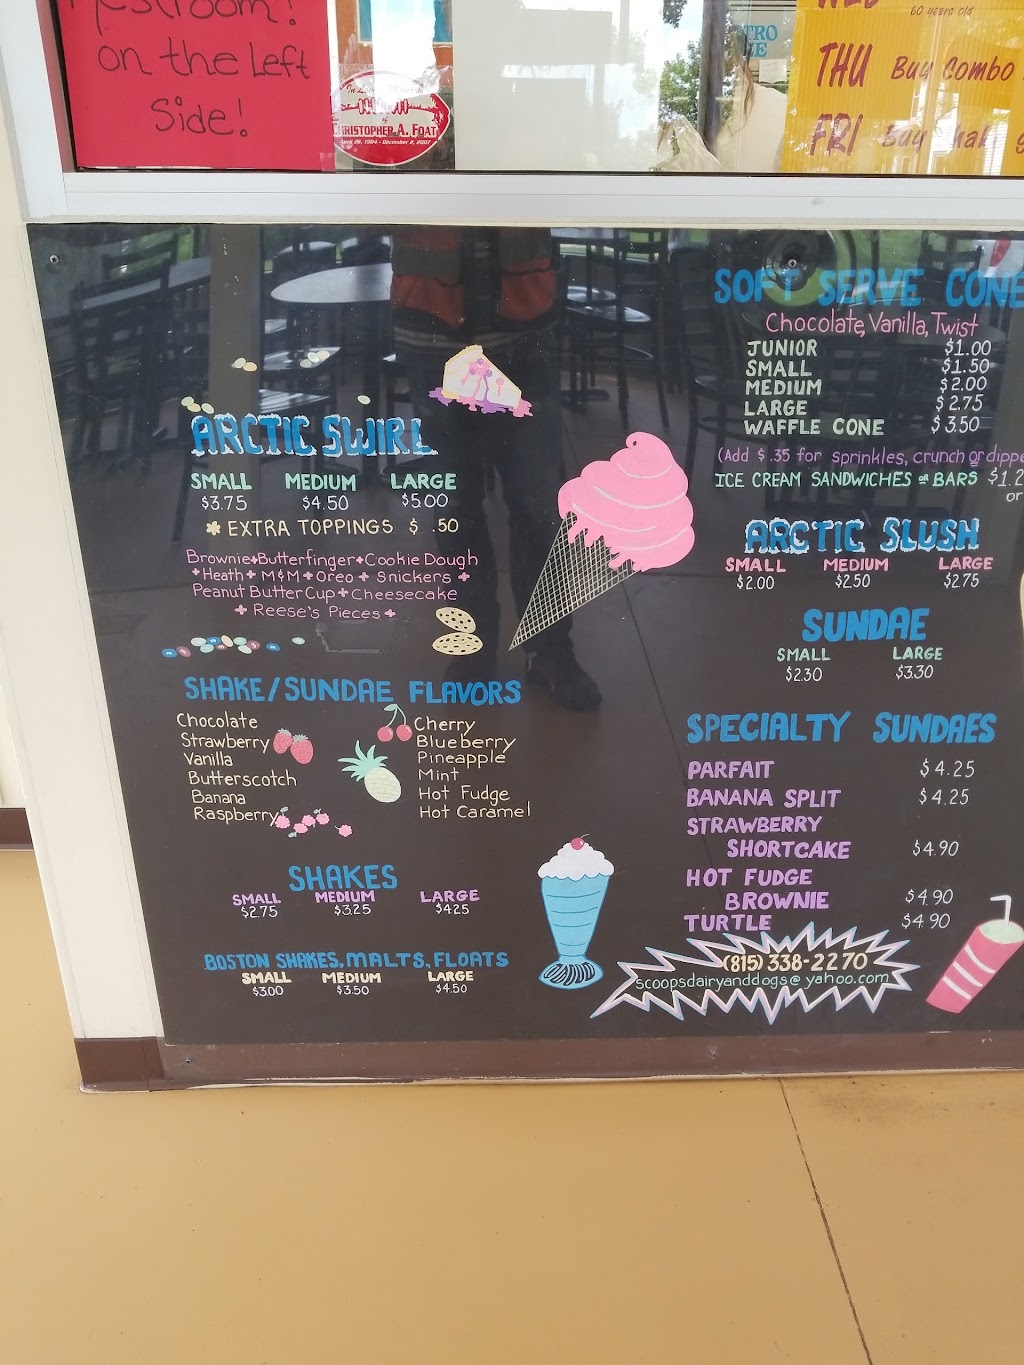 Restroom!
on the Left
Side!
In Loving Memory
of
CHRISTOPHER A. FOAT
April 26, 1984 - December 2, 2007
60 years old
THU Buy Combo
FRI Buy
ARCTIC SWIRL
SMALL MEDIUM LARGE
$3.75 $4.50 $5.00
* EXTRA TOPPINGS $ .50
Brownie + Butterfinger + Cookie Dough
+ Heath + M&M + Oreo + Snickers +
Peanut Butter Cup + Cheesecake
+ Reese's Pieces +
SHAKE/SUNDAE FLAVORS
Chocolate
Strawberry
Vanilla
Butterscotch
Banana
Raspberry
Cherry
Blueberry
Pineapple
Mint
Hot Fudge
Hot Caramel
SHAKES
SMALL MEDIUM LARGE
$2.75 $3.25 $4.25
BOSTON SHAKES, MALTS, FLOATS
SMALL MEDIUM LARGE
$3.00 $3.50 $4.50
SOFT SERVE CONE
Chocolate, Vanilla, Twist
JUNIOR $1.00
SMALL $1.50
MEDIUM $2.00
LARGE $2.75
WAFFLE CONE $3.50
(Add $.35 for sprinkles, crunch or dippe
ICE CREAM SANDWICHES or BARS $1.2
or
ARCTIC SLUSH
SMALL MEDIUM LARGE
$2.00 $2.50 $2.75
SUNDAE
SMALL LARGE
$2.30 $3.30
SPECIALTY SUNDAES
PARFAIT $4.25
BANANA SPLIT $4.25
STRAWBERRY
SHORTCAKE $4.90
HOT FUDGE
BROWNIE $4.90
TURTLE $4.90
(815) 338-2270
scoopsdairyanddogs@yahoo.com